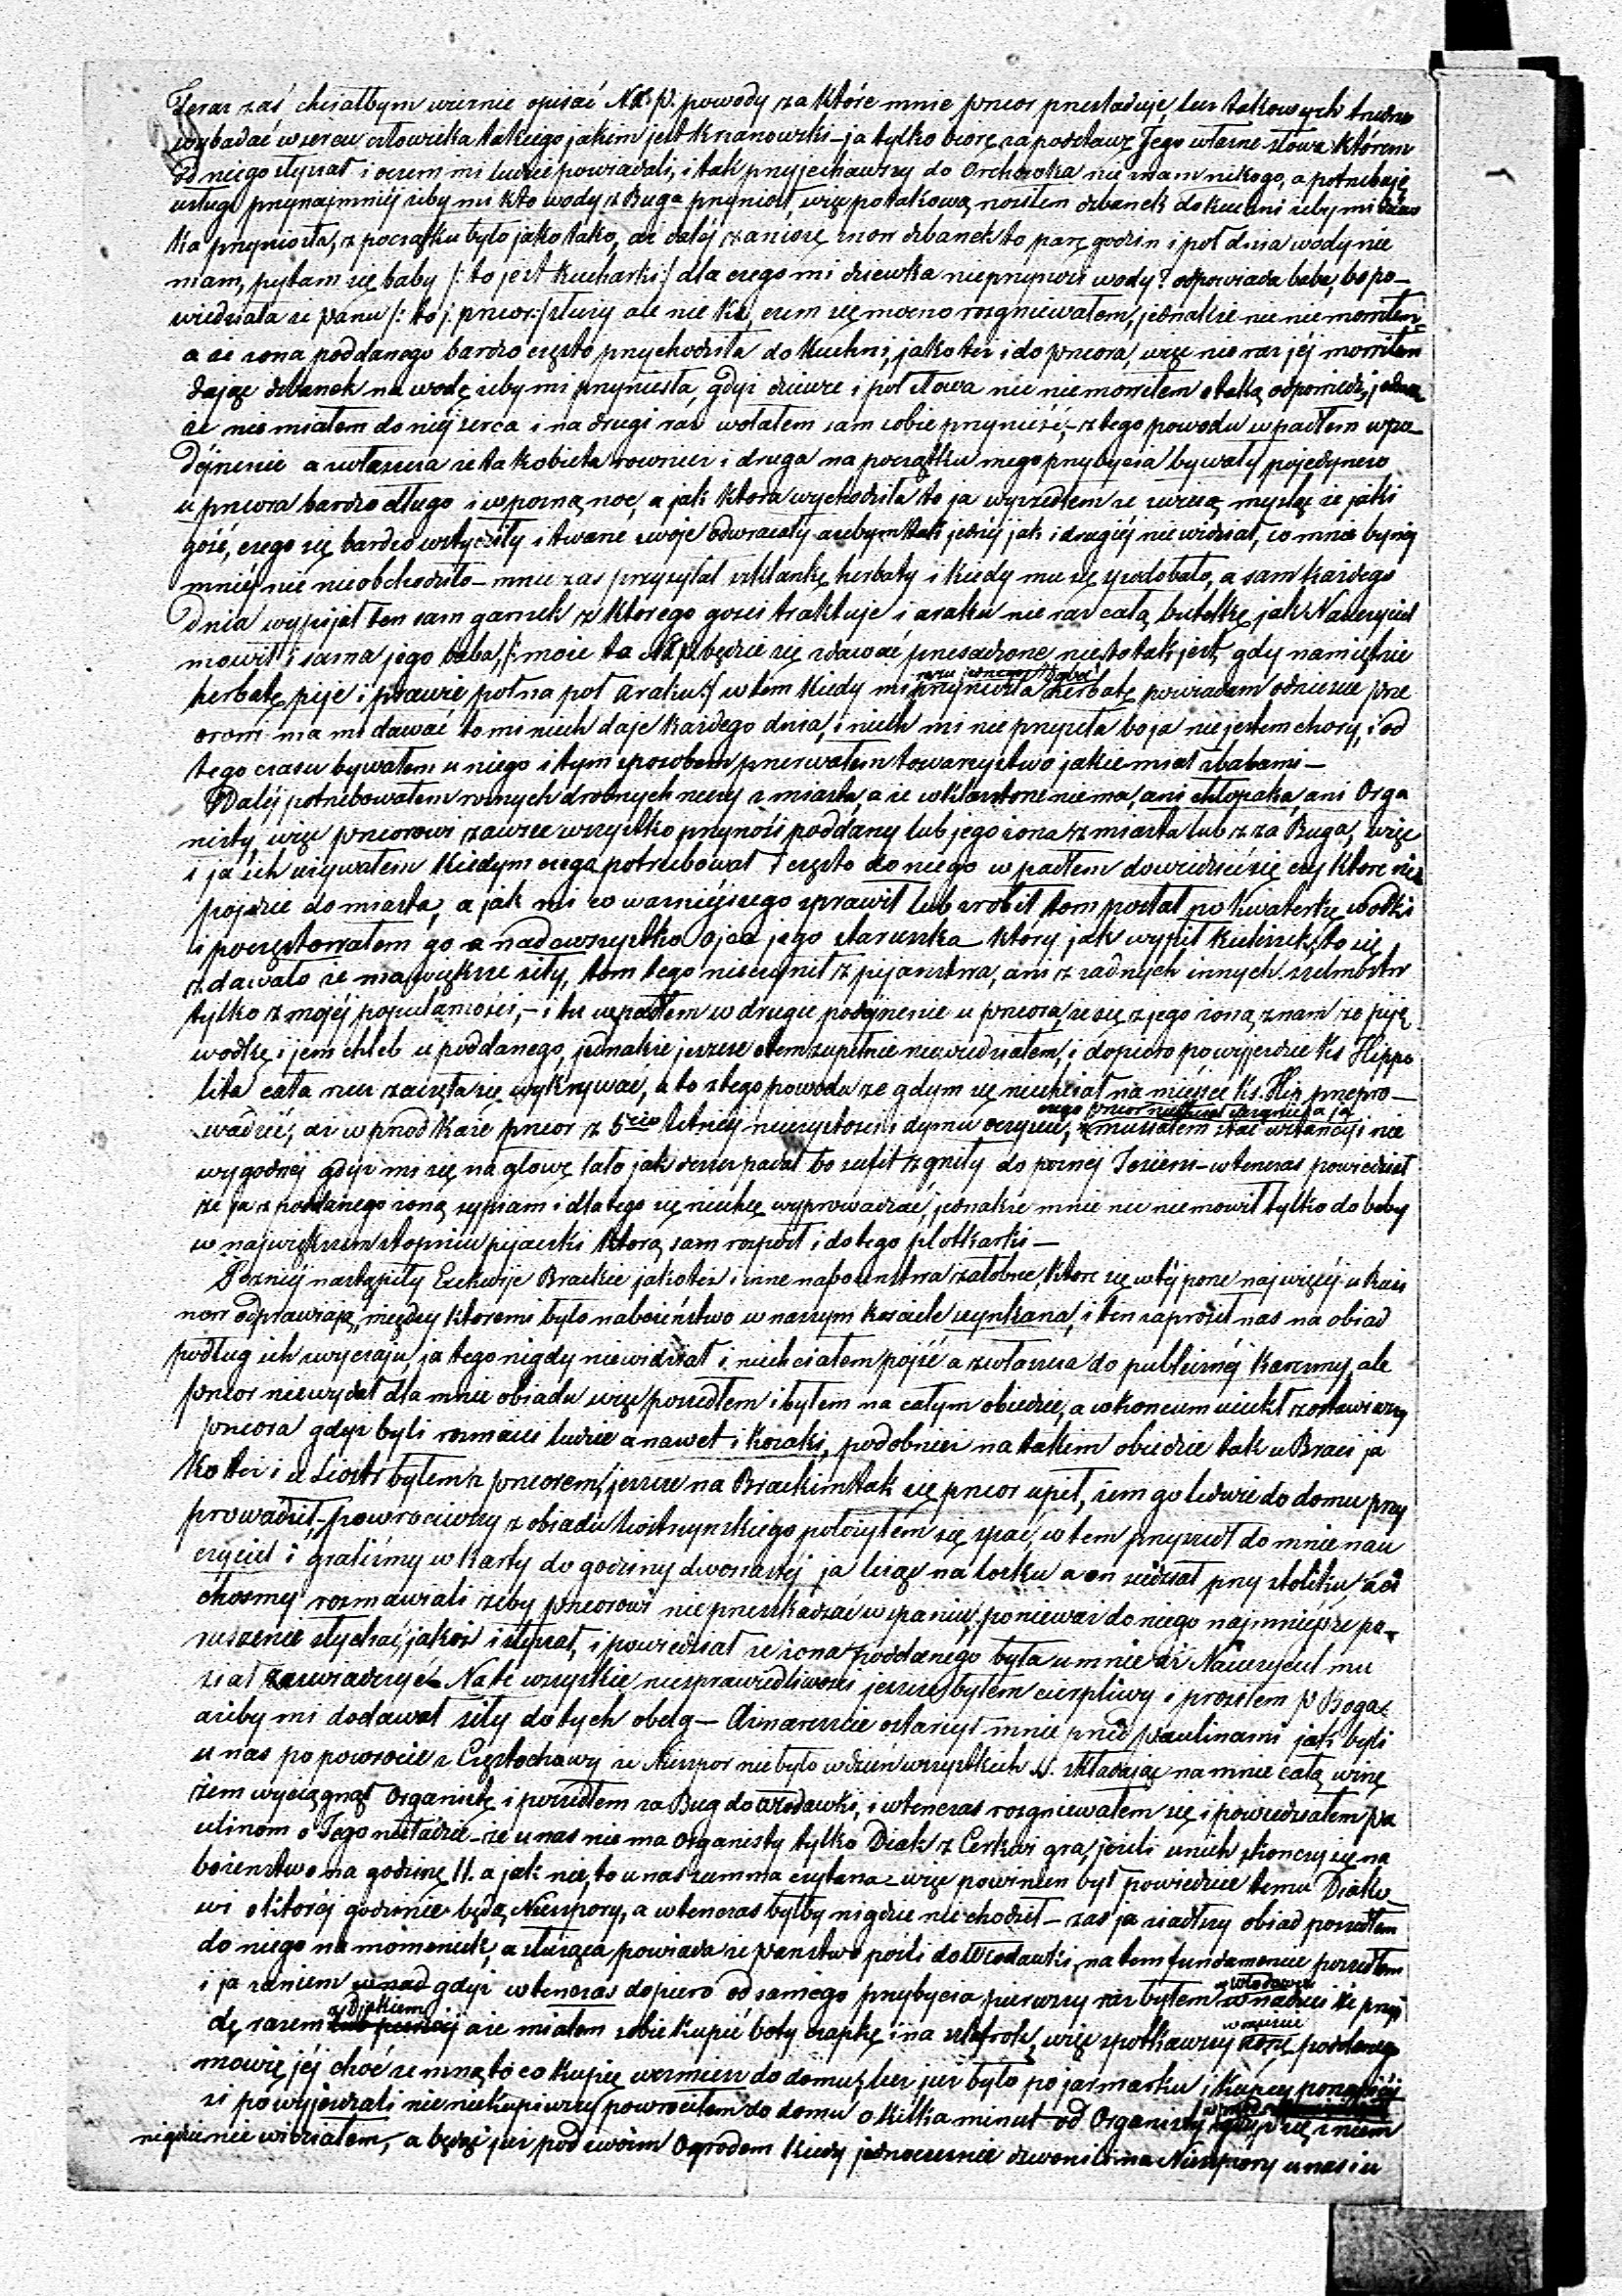 Teraz zaś chciałbym wiernie opisać NX. P. powody za które mnie preor prześladuje, lecz takowych trudno
wybadać w sercu człowieka takiego jakim jest Krzanowski – ja tylko biorę za podstawę Jego własne słowa którem
od niego słyszał i oczem mi ludzie powiadali, i tak przyjechawszy do Orchowka nie mam nikogo, a potrzebuję
usługi przynajmniéj żeby mi kto wody z Buga przyniosł, więc po takową nosiłem dzbanek do kuchni żeby mi dziew
ka przyniosła, z początku było jako tako, aż daléj zaniosę znow dzbanek to parę godzin i poł dnia wody nie
mam, pytam się baby /: to jest Kucharki :/ dla czego mi dziewka nieprzyniosł wody? odpowiada baba, bo po-
wiedziała że panu /: to j. preor :/ służy ale nie Ks, czem się mocno rozgniewałem, jednakże nic nie mowiłem
a że żona poddanego bardzo często przychodziła do Kuchni, jako też i do preora, więc nie raz jéj mowiłem
dając dzbanek na wodę żeby mi przyniesła, gdyż dziewce i poł słowa nic niemowiłem o taką odpowiedź, jednak
że nie miałem do niéj serca i na drugi raz wolałem sam sobie przynieść, – z tego powodu wpadłem w po-
dójrzenie a zwłaszcza że ta kobieta rownież i druga na początku mego przybycia bywały pojedynczo
u preora bardzo długo i w pozną noc, a jak ktora wychodziła to ja wyszedłem ze swiecą myśląc że jaki
gość, czego się bardzo wstydziły i twarze swoje odwracały ażebym tak jednéj jak i drugiéj nie widział, co mnie bynaj
mniéj nic nieobchodziło – mnie zas przysyłał szklankę herbaty i kiedy mu się spodobało, a sam każdego
dnia wypijał ten sam garnek z ktorego gości traktuje i araku nie raz całą butelkę jak Nauczyciel
mowił i sama jego baba, /: może to NX P. będzie się zdawać przesadzone nie to tak jest, gdy namiętnie
herbatę pije i prawie poł na poł araku :/ w tem kiedy mi przyniosła herbatę powiadam odnieście pre
orowi ma mi dawać to mi niech daje każdego dnia, i niech mi nie przysyła bo ja nie jestem chory, i od
tego czasu bywałem u niego i tym sposobem przerwałem towarzystwo jakie miał z babami –
Daléj potrzebowałem roznych drobnych rzeczy z miasta, a że w klasztorze niema, ani chłopaka, ani Orga
nisty, więc preorowi zawsze wszystko przynosi poddany lub jego żona z miasta lub z za Buga, więc
i ja ich używałem kiedym czego potrzebował i często do niego wpadłem dowiedzieć się czy ktore nie
pojdzie do miasta, a jak mi co ważniéjszego sprawił lub zrobił tom posłał po kwaterkę wodki
i poczęstowałem go a nadewszystko ojca jego staruszka który jak wypił kieliszek, to się
zdawało że ma większe siły, tom tego nieczynił z pijanstwa, ani z żadnych innych szelmostw
tylko z mojéj popularności, – i tu wpadłem w drugie podójrzenie u preora, że się z jego żoną znam że piję
wodkę i jem chleb u poddanego, jednakże jeszcze otem zupełnie niewiedziałem, i dopiero po wyjezdzie Ks Hippo
lita cała rzecz zaczęła się wykrywać, a to z tego powodu że gdym się niechciał na miejsce Ks. Hip przepro-
wadzić, aż wprzod każe preor z 5cio letniéj nieczystości i dymu oczyścić, czego preor niechciał uczynić a ja musiałem stać w stancyi nie
wygodnéj gdyż mi się na głowę lało jak deszcz padał bo sufit zgniły do poznej Jesieni – wtenczas powiedział
że ja z poddanego żoną sypiam i dlatego się niechcę wyprowadzać, jednakże mnie nic niemowił tylko do baby
w największem stopniu pijaczki ktorą sam rozpoił i do tego plotkarki –
Poźniéj nastąpiły Exekwije Brackie jako też i inne nabozenstwa żałobne, ktore się w téj porze najwięcéj u Rusi
now odprawiają, między ktoremi było nabożeństwo w naszym kosciele szynkarza, i ten zaprosił nas na obiad
podług ich zwyczaju, ja tego nigdy niewidział i niechciałem pojść a zwłaszcza do publicznéj karczmy, ale
preor niewydał dla mnie obiadu więc poszedłem i byłem na całym obiedzie, a wkoncum uciekł zostawiwszy
preora gdyż byli rozmaici ludzie a nawet i kozaki, podobnież na takim obiedzie tak u Braci ja
ko też i u Siostr byłem z preorem, jeszcze na Brackim tak się preor upił, żem go ledwie do domu przy
prowadził, – powrociwszy z obiadu Siostrzynskiego położyłem się spać, w tem przyszedł do mnie nau
czyciel i graliśmy w karty do godziny dwonastéj ja leżąc na łożku a on siedział przy stoliku,
chosmy rozmawiali żeby preorowi nie przeszkadzać w spaniu, ponieważ do niego najmniéjsze po-
ruszenie słychać, jakoż i słyszał, i powiedział że żona poddanego była u mnie aż Nauczyciel mu
siał zaswiadczyć – Na te wszystkie niesprawiedliwości jeszcze byłem cierpliwy i prosiłem P. Boga
ażeby mi dodawał siły do tych obelg – Aż nareszcie oskarżył mnie przed Paulinami jak byli
u nas po powrocie z Częstochowy że Nieszpor nie było w dzień wszystkich S. składając na mnie całą winę
żem wyciągnął Organistę i poszedłem za Bug do Włodawki, i wtenczas rozgniewałem się i powiedziałem Pa
ulinom o Jego nieładzie – że u nas nie ma organisty tylko Diak z Cerkwi gra, jeżeli u nich skonczy się na
bożenstwo na godzinę 11. a jak nie, to u nas summa czytana – więc powinien był powiedzieć temu Diako
wi o któréj godzinie będą Nieszpory, a wtenczas byłby nigdzie nie chodził – zas ja zjadłszy obiad poszedłem
do niego na momencik, a służąca powiada że Panstwo poszli do Włodawki, na tem fundamencie poszedłem
i ja za niem gdyż wtenczas dopiero od samego przybycia pierwszy raz byłem w Włodawie w nadziei że przyj
dę razem z Djakiem a że miałem sobie kupić boty czapkę i na szlafrok, więc spotkawszy w miescie żonę poddanego
mowię jéj choć ze mną to co kupię wezmiesz do domu, lecz już było po jarmarku i kupcy
si powyjeżdzali nic niekupiwszy powrociłem do domu o kilka minut od Organisty
nigdzie nie widziałem, – a będąc już pod swoim Ogrodem kiedy jednoczesnie dzwonili na Nieszpory u nas i u